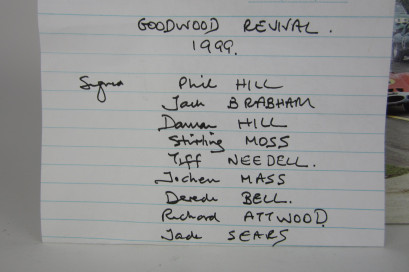 GOODWOOD REVIVAL.
1999.
Signed Phil HILL
Jack BRABHAM
Damon HILL
Stirling MOSS
Tiff NEEDELL.
Jochen MASS
Derek BELL.
Richard ATTWOOD.
Jack SEARS